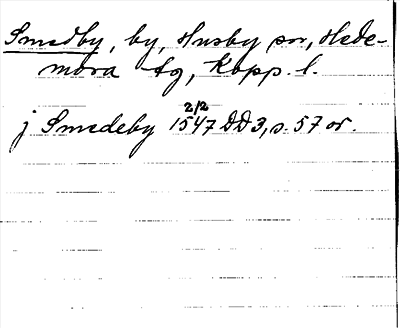 Smedby, by, Husby sn, Hede-
mora tg, Kopp. l.
2/2
j Smedeby 1547 DD3, s. 57 or.